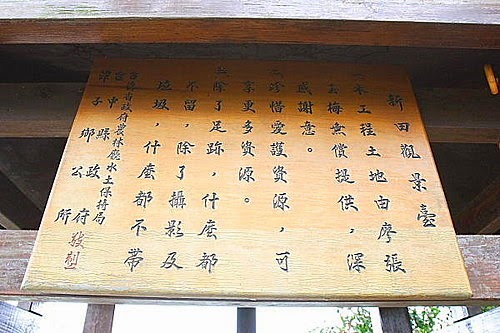 新田觀景臺
一、本工程土地由廖張
玉梅無償提供，深
感謝意。
二、珍惜愛護資源，可
享更多資源。
三、除了足跡，什麼都
不留，除了攝影及
垃圾，什麼都不帶
臺灣省政府農林廳水土保持局
臺中縣政府
潭子鄉公所
敬製